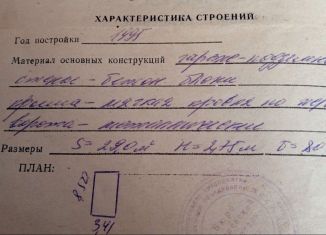 ХАРАКТЕРИСТИКА СТРОЕНИЙ
Год постройки 1995
Материал основных конструкций гараж-подземн
стены - бетон блоки
крыша - мягкая кровля по
ворота - металлические
Размеры S = 29,0 м H = 2,45 м
ПЛАН:
8,52
3,41